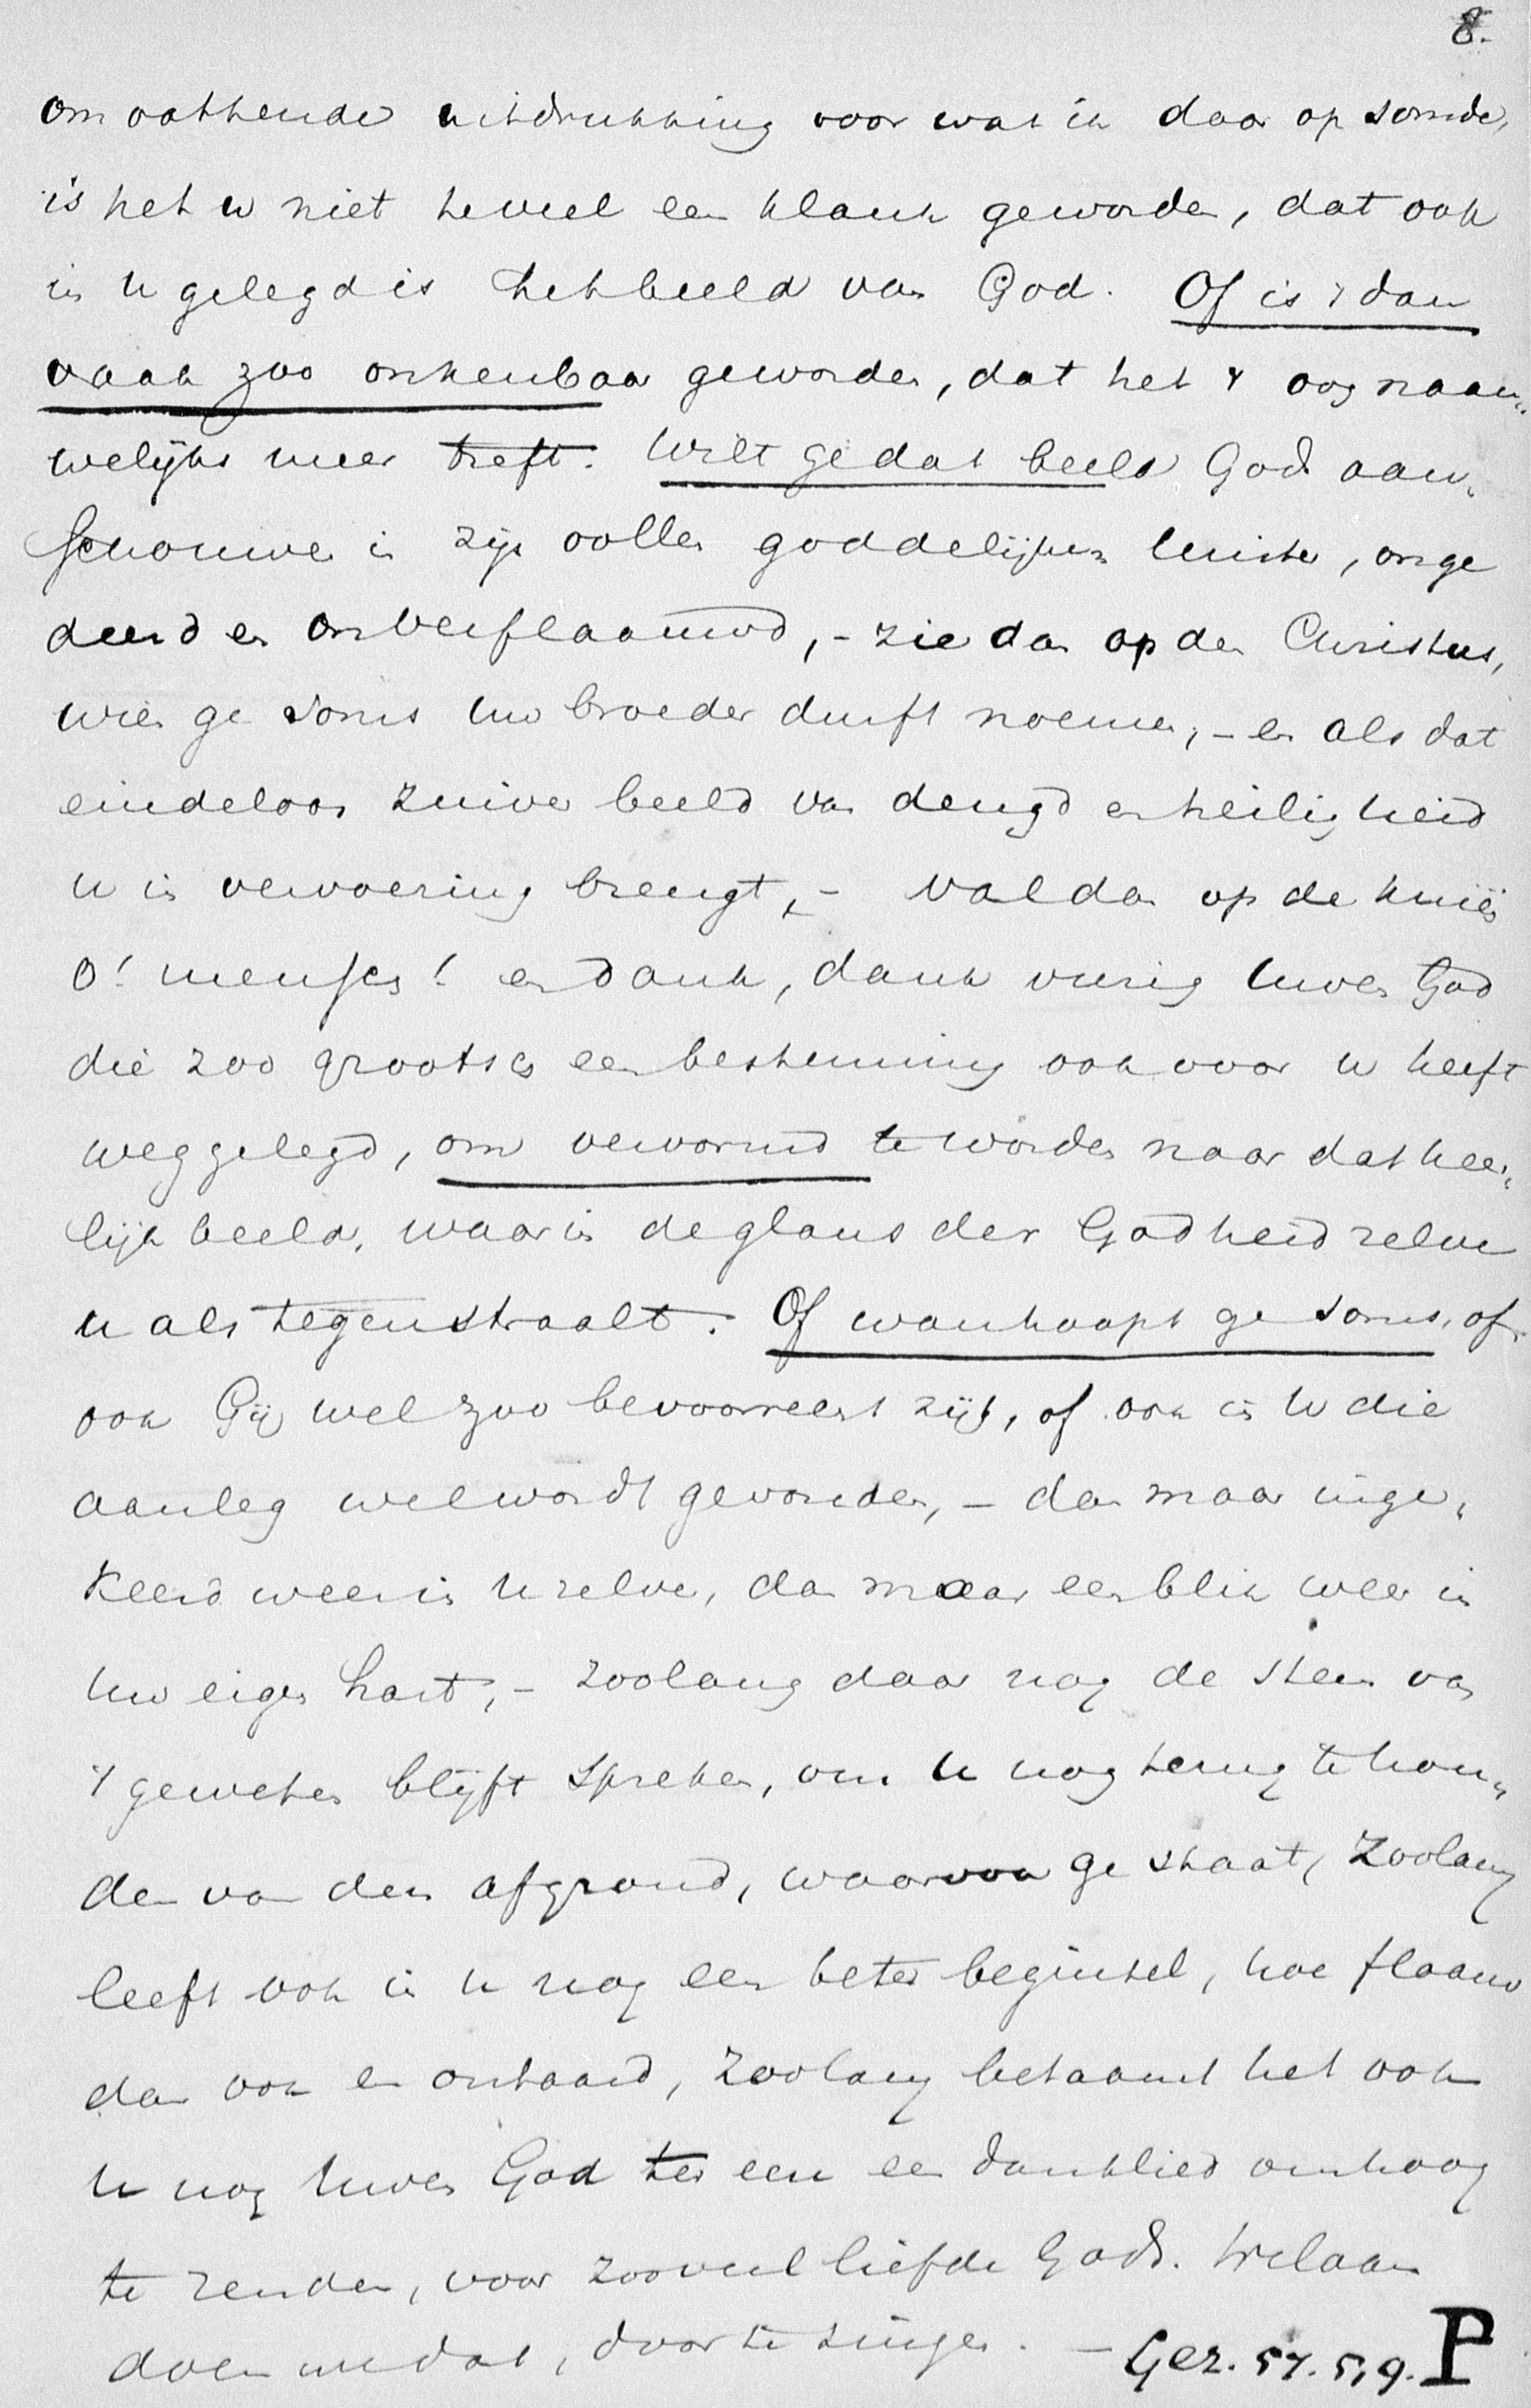 8.
omvattende uitdrukking voor wat ik daar opsomde,
is het u niet te veel een klank geworden, dat ook
in U gelegd is het beeld van God. Of is 't dan
vaak zoo onkenbaar geworden, dat het 't oog naau„
welijks meer treft. Wilt ge dat beeld Gods aan„
schouwen in zijn vollen goddelijken luister, onge
deerd en onverflaauwd, - zie dan op den Christus,
wien ge soms Uw broeder durft noemen, - en als dat
eindeloos zuiver beeld van deugd en heiligheid
U in vervoering brengt, - val dan op de knieën
O! mensch! en dank, dank vurig Uwen God
die zoo grootsch een bestemming ook voor U heeft
weggelegd, om vervormd te worden naar dat heer„
lijk beeld, waarin de glans der Godheid zelve
U als tegenstraalt. Of wanhoopt ge soms, of
ook Gij wel zoo bevoorrecht zijt, of ook in U die
aanleg wel wordt gevonden, - dan maar inge„
keerd weer in U zelve, dan maar een blik weer in
Uw eigen hart, - zoolang daar nog de stem van
't geweten blijft spreken, om U nog terug te hou„
den van den afgrond, waarvoor ge staat, zoolang
leeft ook in U nog een beter beginsel, hoe flaauw
dan ook en ontaard, zoolang betaamt het ook
U nog Uwen God ter eere een danklied omhoog
te zenden, voor zooveel liefde Gods. Welaan
doen we dat, door te zingen. - Gez. 57. 5, 9. P